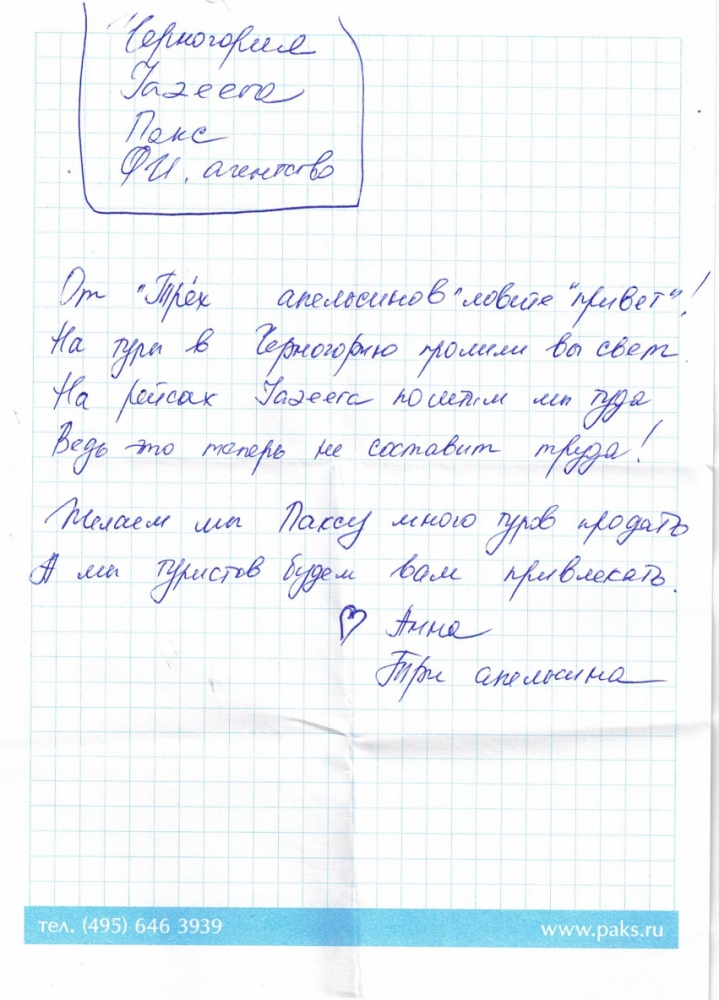 Черногория
Jazeera
Пакс
ФИ. агентство
От "Трёх апельсинов" ловите "привет"!
На туры в Черногорию пролили вы свет
На рейсах Jazeera полетим мы туда
Ведь это теперь не составит труда!
Желаем мы Паксу много туров продать
А мы туристов будем вам привлекать.
♡ Анна
Три апельсина
тел. (495) 646 3939 www.paks.ru